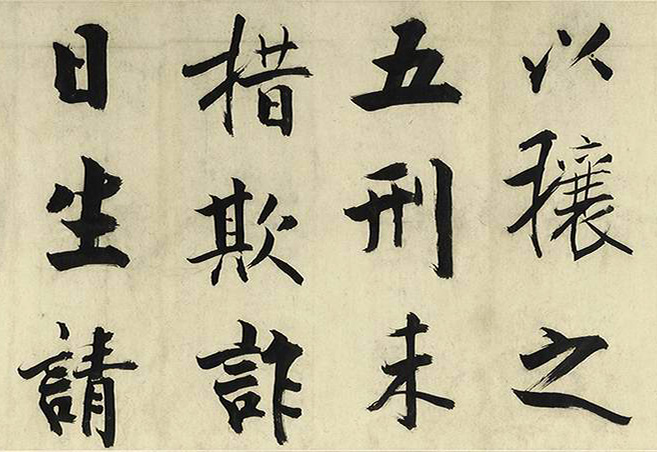 以禳之
五刑未
措欺詐
日生請